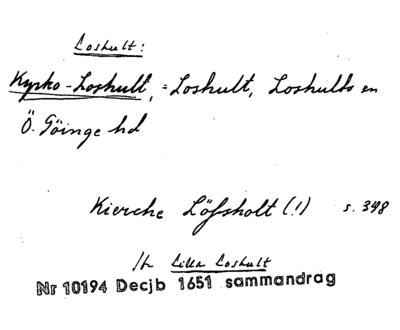 Loshult:
Kyrko-Loshult, = Loshult, Loshults sn
Ö. Göinge hd
Kierche Löfsholt (!) s. 348
Jfr Lilla Loshult
Nr 10194 Decjb 1651 sammandrag